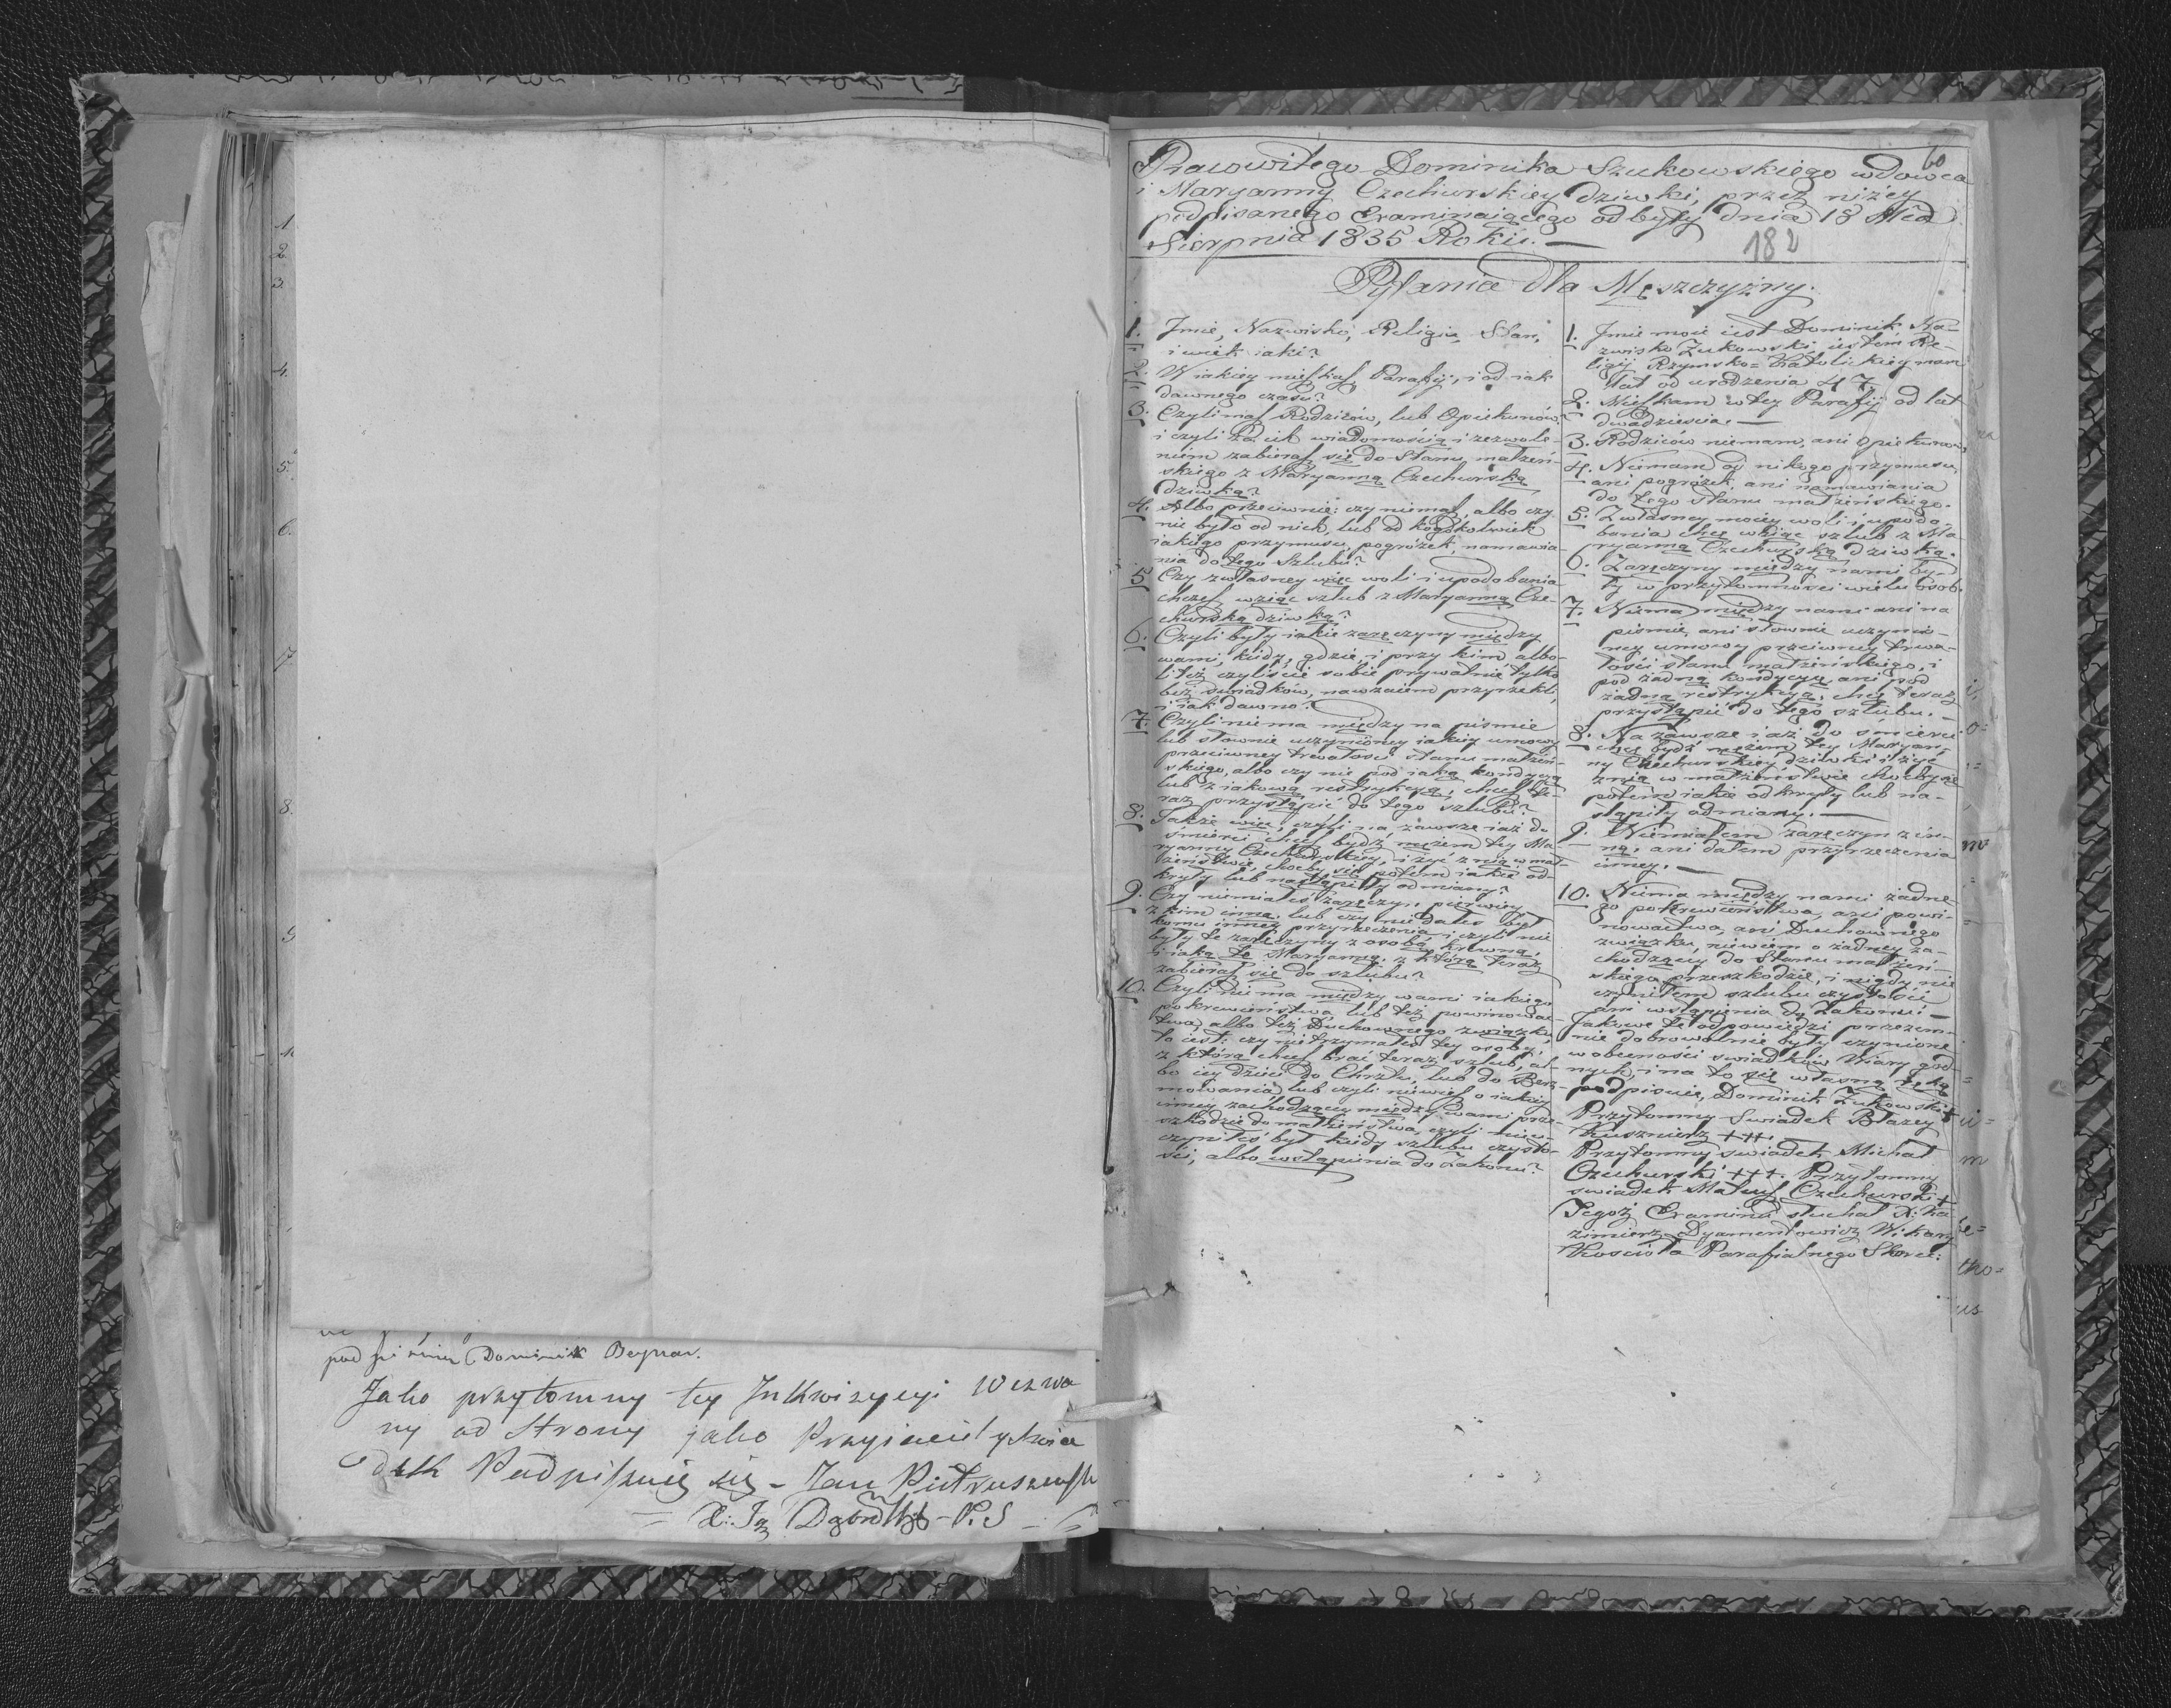 pod pi suię Dominik Beynar.
Jako przytomny tey Jnkwizycyi Wezwa
ny od Strony jako Przyiaciel y Swia
dek Podpisuię się – Jan Pietruszewsk
60
Pracowitego Dominika Szukowskiego wdowca
i Maryanny Czechurskiey dziewki, przez niżey
podpisanego Examinaiącego odbyty dnia 18 Mca
Sierpnia 1835 Roku. —
182
Pytania dla Męszczyzny.
1. Jmie, Nazwisko, Religia, Stan,
i wiek iaki?
2. W iakiey mieszkasz Parafij, i od iak
dawnego czasu?
3. Czyli masz Rodziców, lub Opiekunów,
i czyli za ich wiadomością i zezwole-
niem zabierasz się do Stanu małżeń-
skiego z Maryanną Czechurską
dziewką?
4. Albo przeciwnie: czy niemasz, albo czy
nie było od nich, lub od kogokolwiek
iakiego przymusu, pogróżek, namawia-
nia do tego Szlubu?
5. Czy z własney więc woli i upodobania
chcesz wziąc szlub z Maryanną Cze-
churską dziewką?
6. Czyli były iakie zaręczyny między
wami, kiedy, gdzie, i przy kim albo-
li też czyliście sobie prywatnie tylko
bez swiadków, nawzaiem przyrzekli,
i iak dawno?
7. Czyli niema między na pismie
lub słownie uczynioney iakiey umowy
przeciwney trwałości stanu małżeń-
skiego, albo czy nie pod iaką kondycyą
lub z iakową restrykcyą, chcesz te-
raz przystąpić do tego szlubu?
8. Także więc, czyli na zawsze iaż do
śmierci chcesz bydź mężem tey Ma-
ryanny Czechurskiey, i żyć z nią w mał-
żeństwie, choćby się potem iakie od-
kryły lub nastąpiły odmiany?
9. Czy niemiałeś zaręczyn pierwiey
z kim inną, lub czy niedałeś był
komu inney przyrzeczenia i czyli nie
były te zaręczyny z osobą krewną,
i iaką te Maryanną, z którą teraz
zabierasz się do szlubu?
10. Czyli niema między wami iakiego
pokrewieństwa, lub też powinowac-
twa, albo też Duchownego związku,
to iest: czy nietrzymałeś tey osoby,
z którą chcesz brać teraz szlub, al-
bo iey dzieci do Chrztu, lub do Berz-
mowania, lub czyli niewiesz o iakiey
inney zachodzącey między wami prze-
szkodzie do małżeństwa, czyli nie-
czyniłeś był kiedy szlubu czysto-
ści, albo wstąpienia do Zakonu?
1. Jmie moie iest Dominik Na-
zwisko Żukowski, iestem Re-
ligij Rzymsko=Katolickiey mam
lat od urodzenia 47.
2. Mieszkam w tey Parafij od lat
dwadziescia. —
3. Rodziców niemam, ani Opiekunow.
4. Niemam od nikogo przymusu,
ani pogróżek, ani namawiania
do tego stanu małżeńskiego.
5. Z własney moiey woli i upodo-
bania chcę wziąc szlub z Ma-
ryanną Czechurską dziewką.
6. Zaręczyny między nami by-
ły w przytomności wielu osob.
7. Niema między nami ani na
pismie, ani słownie uczynio-
ney umowy przeciwney trwa-
łości stanu małżeńskiego, i
pod żadną kondycyą, ani pod
żadną restrykcyą, chcę teraz
przystąpić do tego szlubu. —
8. Na zawsze iaż do smierci
chcę bydź mężem tey Maryan-
ny Czechurskiey dziewki i żyć
z nią w małżenstwie choćby się
potem iakie odkryły lub na-
stąpiły odmiany. —
9. Niemiałem zaręczyn z in-
ną, ani dałem przyrzeczenia
inney. —
10. Niema między nami żadne-
go pokrewieństwa, ani powi-
nowactwa, ani Duchownego
związku, niewiem o żadney za-
chodzącey do Stanu małżeń-
skiego przeszkodzie, i nigdy nie
czyniłem szlubu czystości
ani wstąpienia do Zakonu. —
Jakowe te odpowiedzi przezem-
nie dobrowolnie były czynione
w obecności swiadków Wiary god-
nych, i na to się własną ręką
podpisuię, Dominik Żukowski +
Przytomny Swiadek Błażey
Kusznierz +++.
Przytomny swiadek Michał
Czechurski +++. Przytomny
swiadek Mateusz Czechurski +
Tegoż Examinu słuchał X: Ka-
zimierz Dyamentowicz Wikary
Kościoła Parafialnego Skree: